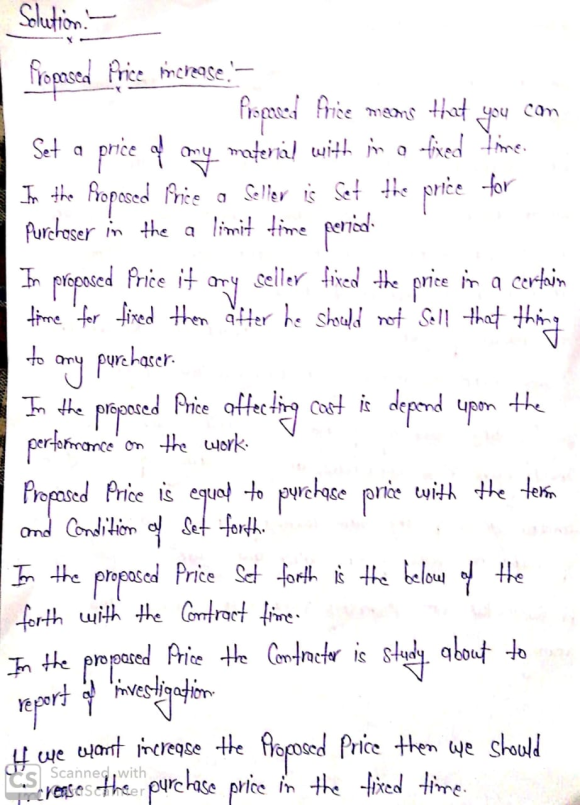 Solution:-
Proposed Price increase:-
Proposed Price means that you can
Set a price of any material with in a fixed time.
In the Proposed Price a Seller is Set the price for
Purchaser in the a limit time period.
In proposed Price if any seller fixed the price in a certain
time for fixed then after he should not Sell that thing
to any purchaser.
In the proposed Price affecting cost is depend upon the
performance on the work.
Proposed Price is equal to purchase price with the term
and Condition of Set forth.
In the proposed Price Set forth is the below of the
forth with the Contract time.
In the proposed Price the Contractor is study about to
report of investigation.
If we want increase the Proposed Price then we should
increase the purchase price in the fixed time.
CS Scanned with
CamScanner